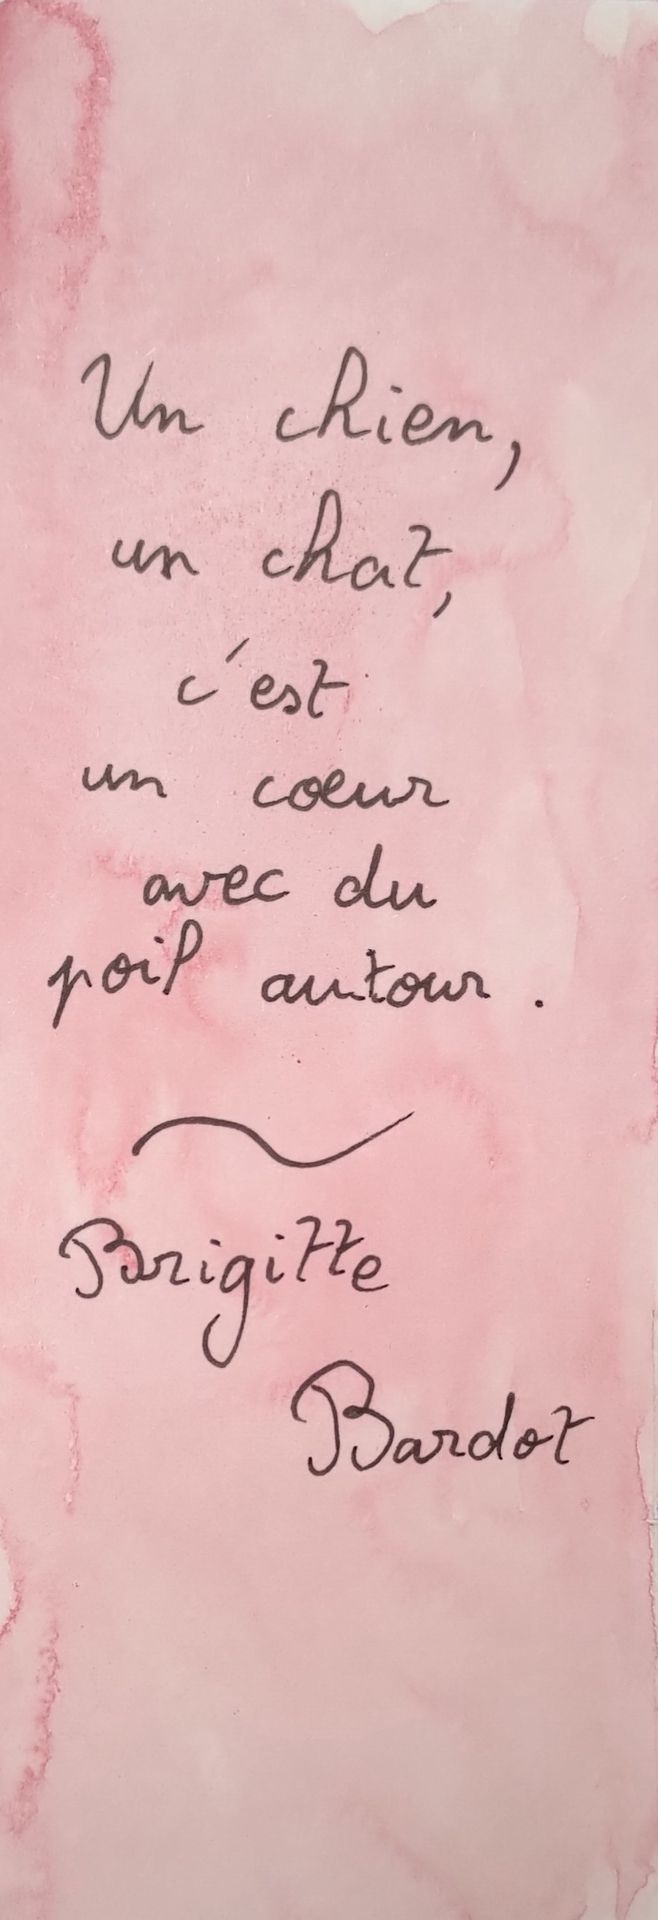 Un chien,
un chat,
c'est
un cœur
avec du
poil autour.
Brigitte
Bardot